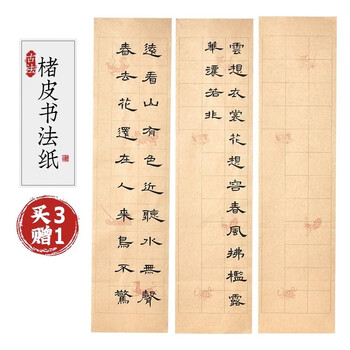 古法
楮皮书法纸
买3
赠1
遠看山有色近聽水無聲
春去花還在人來鳥不驚
雲想衣裳花想容春風拂檻露
華濃若非